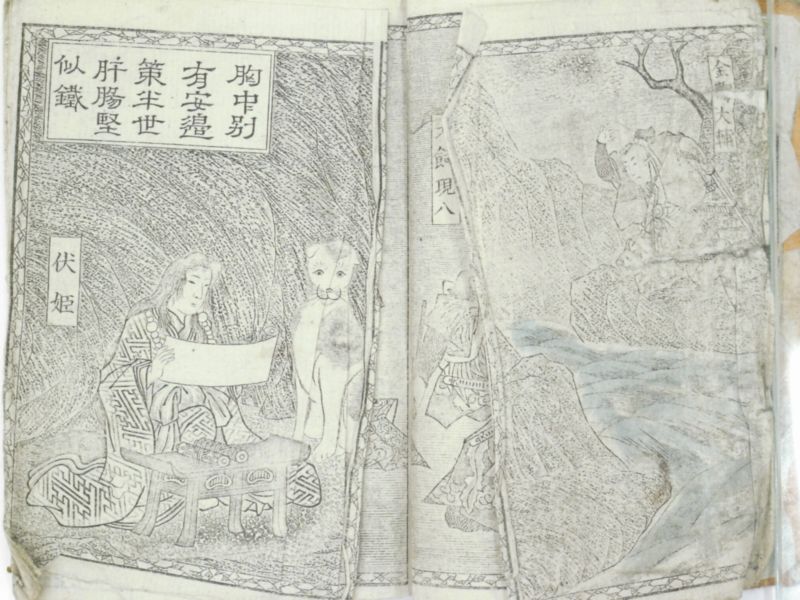 胸中别
有安邉
策半世
肝膓堅
似鐵
伏姫
飼現八
大輔